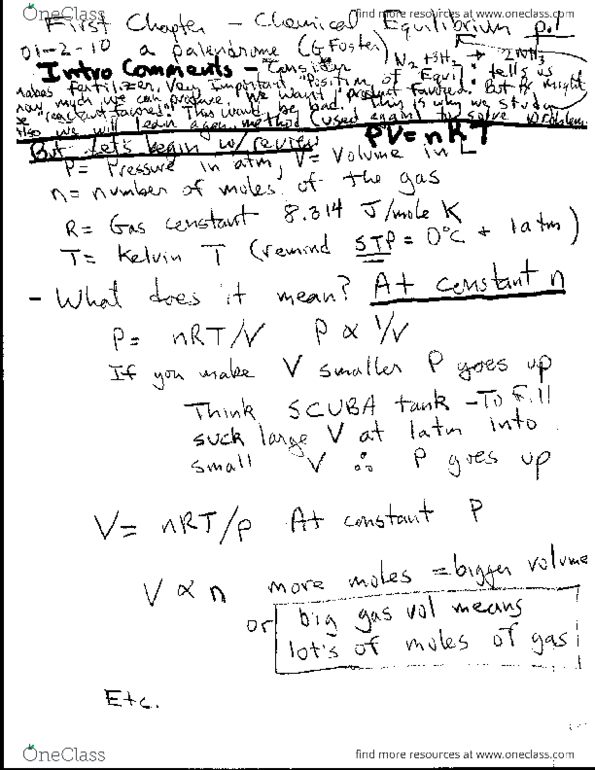 OneClass find more resources at www.oneclass.com
First Chapter - Chemical Equilibrium p.1
01-2-10 a palendrome (G Foster) N2 + 3H2 → 2NH3
Intro Comments - Consider tells us
makes fertilizer. Very important "Position of Equil."
how much we can produce. We want "product favored". But it might
be "reactant favored." This would be bad. This is why we study
Also we will learn a method (used again) to solve problems
But let's begin w/ review PV = nRT
P = Pressure in atm, V = Volume in L
n = number of moles of the gas
R = Gas constant 8.314 J/mole K
T = Kelvin T (remind STP = 0°C + 1atm)
- What does it mean? At constant n
P = nRT/V P ∝ 1/V
If you make V smaller P goes up
Think SCUBA tank - To fill
suck large V at 1atm into
small V ∴ P goes up
V = nRT/P At constant P
V ∝ n more moles = bigger volume
or big gas vol means
lot's of moles of gas
Etc.
OneClass find more resources at www.oneclass.com